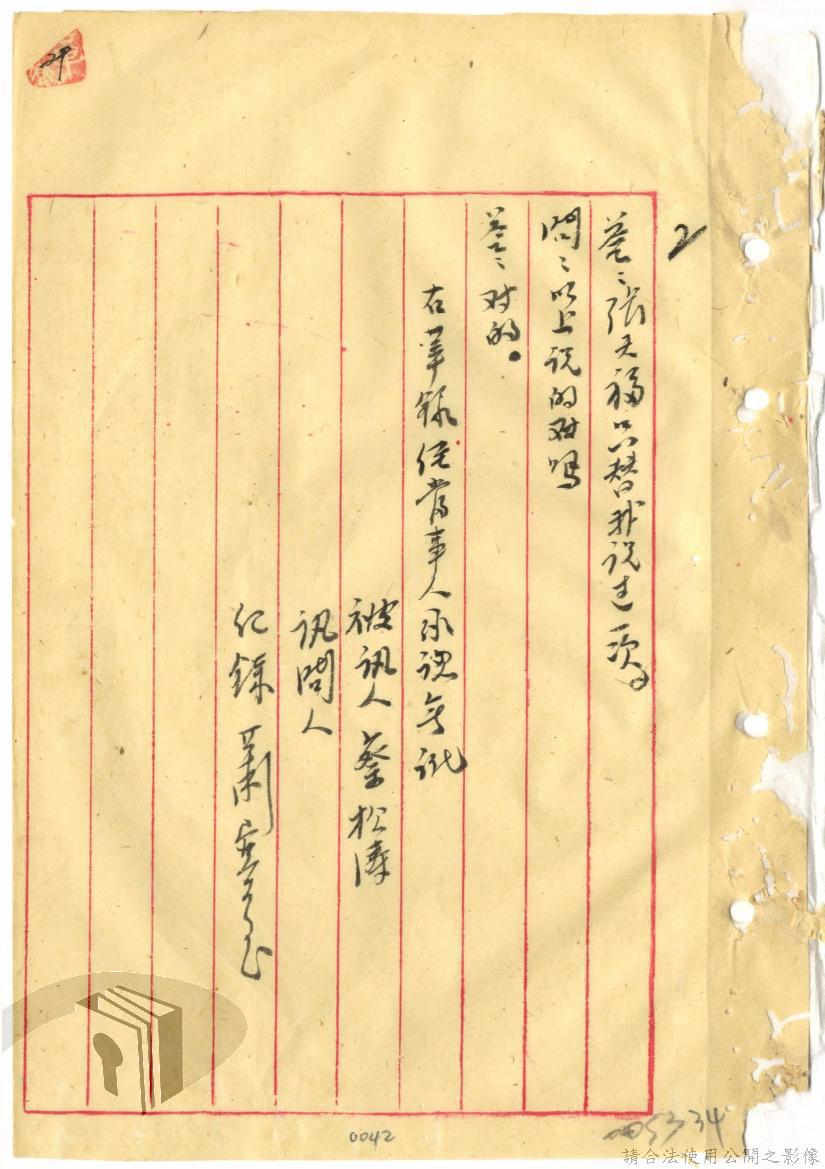 2
答:張天福只替我说过一次。
問:以上说的对嗎
答:对的。
右筆録经當事人承認無訛
被訊人 蔡松濤
訊問人
纪錄 蕭
29
0042
005334
請合法使用公開之影像